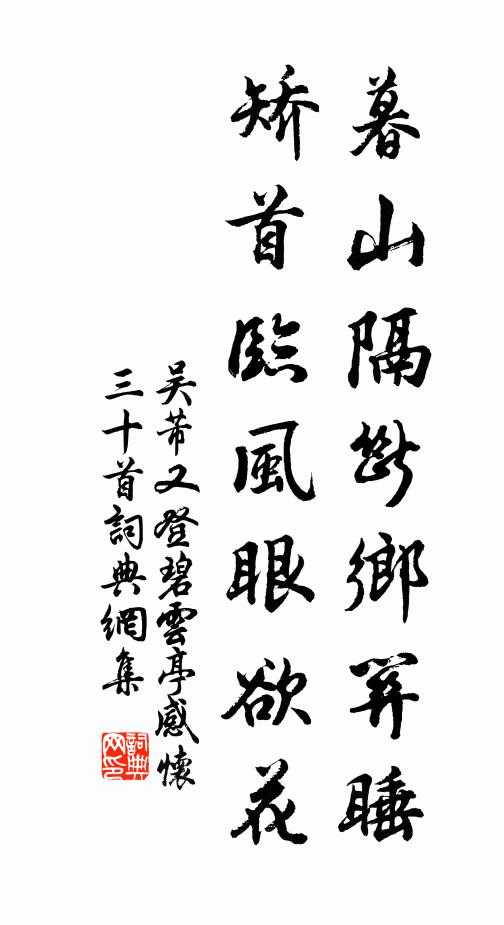 暮山隔斷鄉關睡
矯首臨風眼欲花
吴芾又登碧雲亭感懷
三十首詞典網集
詞典
网印